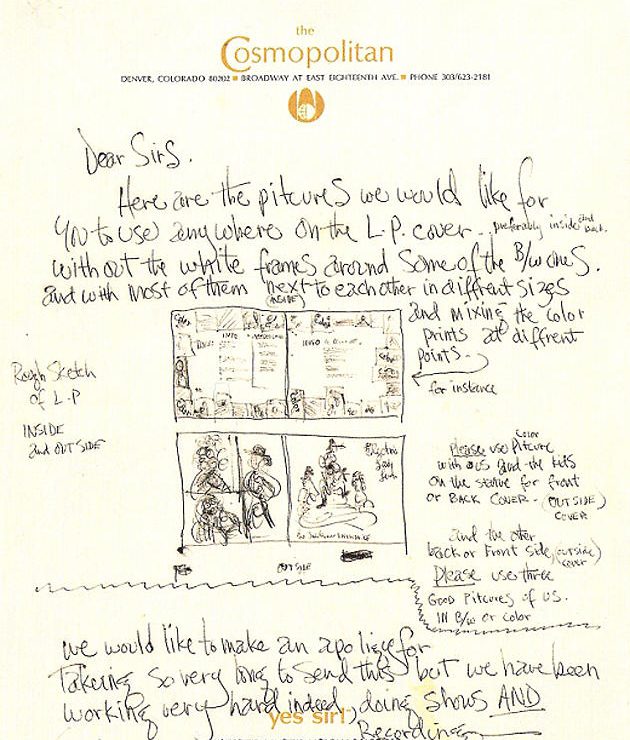 the
Cosmopolitan
DENVER, COLORADO 80202 ■ BROADWAY AT EAST EIGHTEENTH AVE. ■ PHONE 303/623-2181
Dear Sirs.
Here are the pitcures we would like for
You to use anywhere on the L.P. cover.. preferably inside and back.
without the white frames around some of the B/w ones.
and with most of them next to each other in diffrent sizes
and mixing the color
prints at diffrent
points.
for instance
(INSIDE)
INFO
INFO
Rough Sketch
of L.P
INSIDE
and OUTSIDE
Electric
Lady
Land
OUTSIDE
Please use color Pitcure
with us and the kids
on the statue for front
or BACK COVER - (OUTSIDE)
COVER
and the other
back or Front side, (outside)
cover
Please use three
GOOD Pitcures of us.
IN B/w or color
we would like to make an apoligize for
Takeing so very long to send this but we have been
working very hard indeed, doing shows AND
Recording
yes sir!